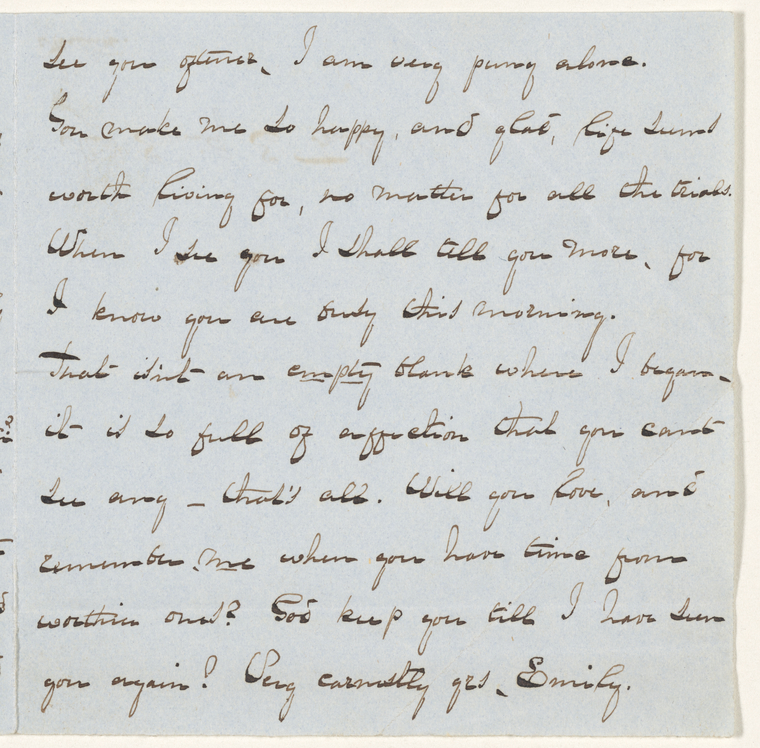 see you oftener, I am very puny alone.
You make me so happy, and glad, life seems
worth living for, no matter for all the trials.
When I see you I shall tell you more, for
I know you are busy this morning.
That isn't an empty blank where I began -
it is so full of affection that you cant
see any - that's all. Will you love, and
remember, me when you have time from
worthier ones? God keep you till I have seen
you again! Very earnestly yrs, Emily.